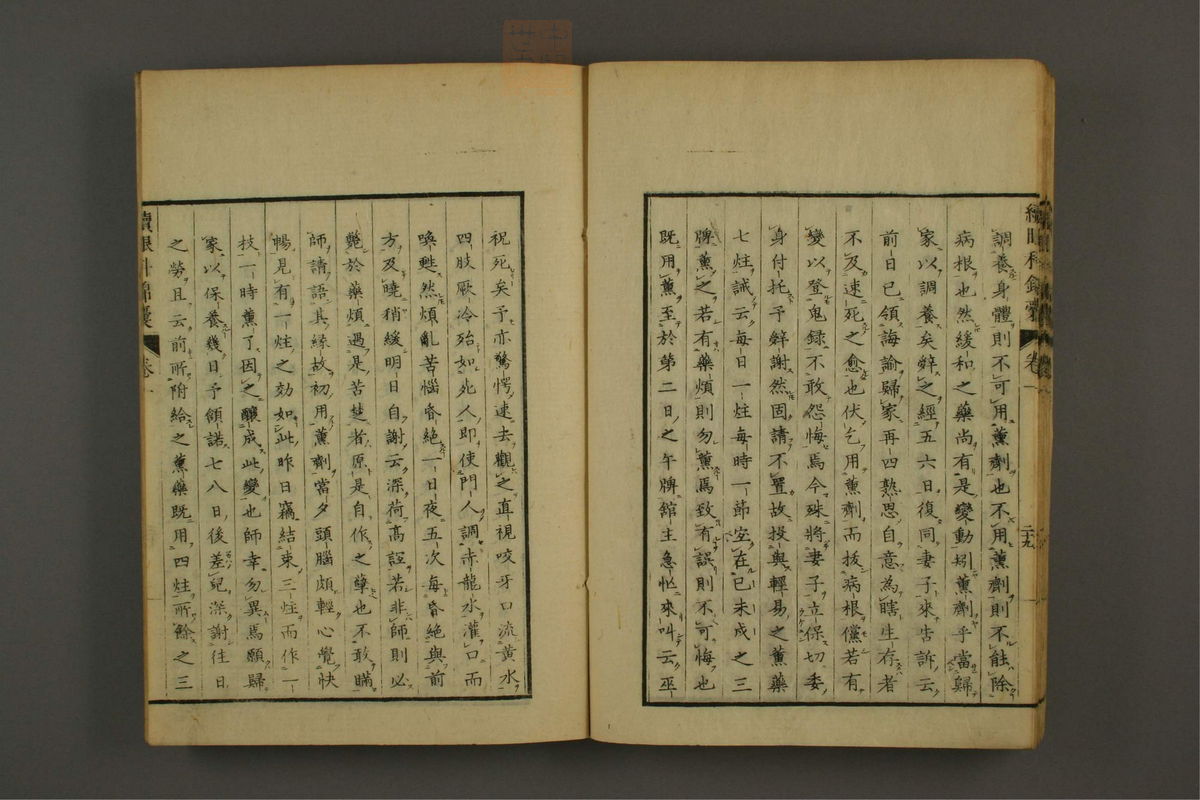 續眼科錦囊 卷一 二十九
調養身體則不可用薰劑也不用薰劑則不能除
病根也然緩和之藥尚有是變動矧薰劑乎當歸
家以調養矣辤之經五六日復同妻子來告訴云
前日已領誨諭歸家再四熟思自意為瞎生存者
不及速死之愈也伏乞用薰劑而拔病根儻若有
變以登鬼録不敢怨悔焉今殊將妻子立保切委
身付托予辤謝然固請不置故投與輕易之薰藥
七炷誡云每日一炷每時一節宜在巳未戌之三
牌薰之若有藥煩則勿薰焉致有誤則不可悔也
既用薰至於第二日之午牌舘主急忙來叫云巫
祝死矣予亦驚愕速去觀之直視咬牙口流黄水
四肢厥冷殆如死人即使門人調赤龍水灌口而
喚甦然煩亂苦惱昏絶一日夜五次每昏絶與前
方及曉稍緩明日自謝云深荷高誼若非師則必
斃於藥煩過是苦楚者原是自作之孽也不敢瞞
師請語其縁故初用薰劑當夕頭腦頗輕心覺快
暢見有一炷之効如此昨日竊結束三炷而作一
技一時薰了因之釀成此變也師幸勿異焉願歸
家以保養幾日予頷諾七八日後差皃深謝往日
之勞且云前所附給之薰藥既用四炷所餘之三
續眼科錦囊 卷一